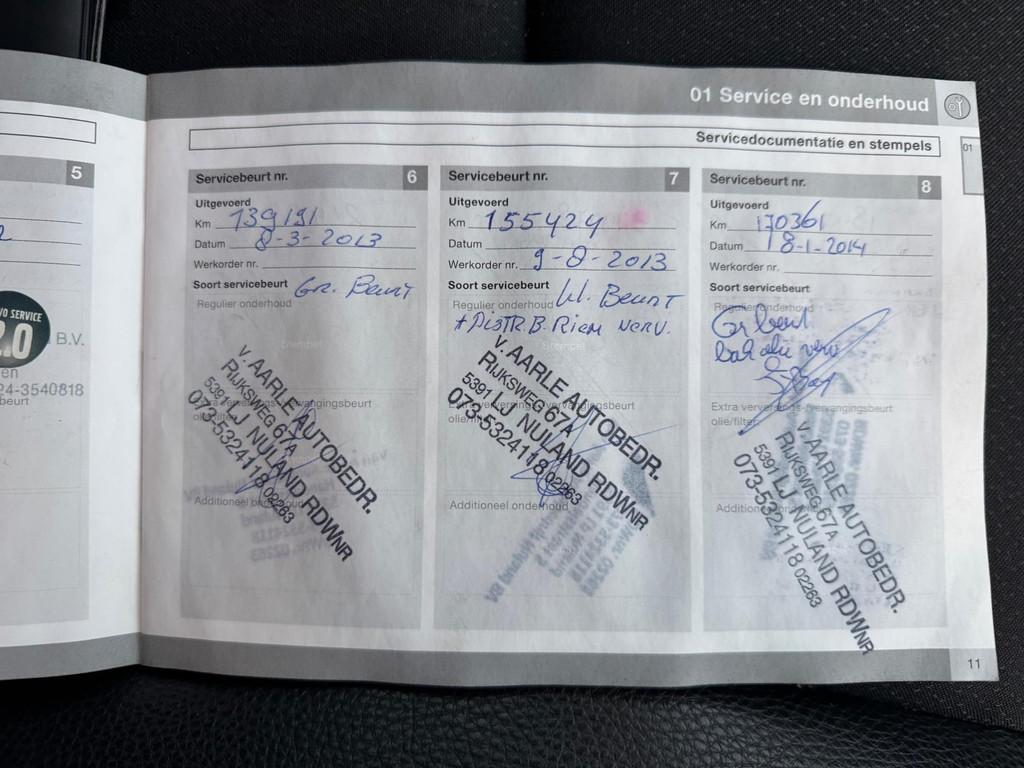 01 Service en onderhoud
01
Servicedocumentatie en stempels
5
O SERVICE
2.0
B.V.
en
24-3540818
beurt
Servicebeurt nr. 6
Uitgevoerd
Km 139191
Datum 8-3-2013
Werkorder nr.
Soort servicebeurt Gr. Beurt
Regulier onderhoud
Stempel
Additioneel onderhoud
v. AARLE AUTOBEDR.
RIJKSWEG 67A
5391 LJ NULAND RDWNR
073-5324118 02263
Servicebeurt nr. 7
Uitgevoerd
Km 155424
Datum
Werkorder nr. 9-8-2013
Soort servicebeurt
Regulier onderhoud Kl. Beurt
+ DisTR.B. Riem verv.
Stempel
Additioneel onderhoud
v. AARLE AUTOBEDR.
RIJKSWEG 67A
5391 LJ NULAND RDWNR
073-5324118 02263
Servicebeurt nr. 8
Uitgevoerd
Km 170361
Datum 18-1-2014
Werkorder nr.
Soort servicebeurt
Regulier onderhoud
Gr beurt
Extra verversings-/vervangingsbeurt
olie/filter
v. AARLE AUTOBEDR.
RIJKSWEG 67A
5391 LJ NULAND RDWNR
073-5324118 02263
11